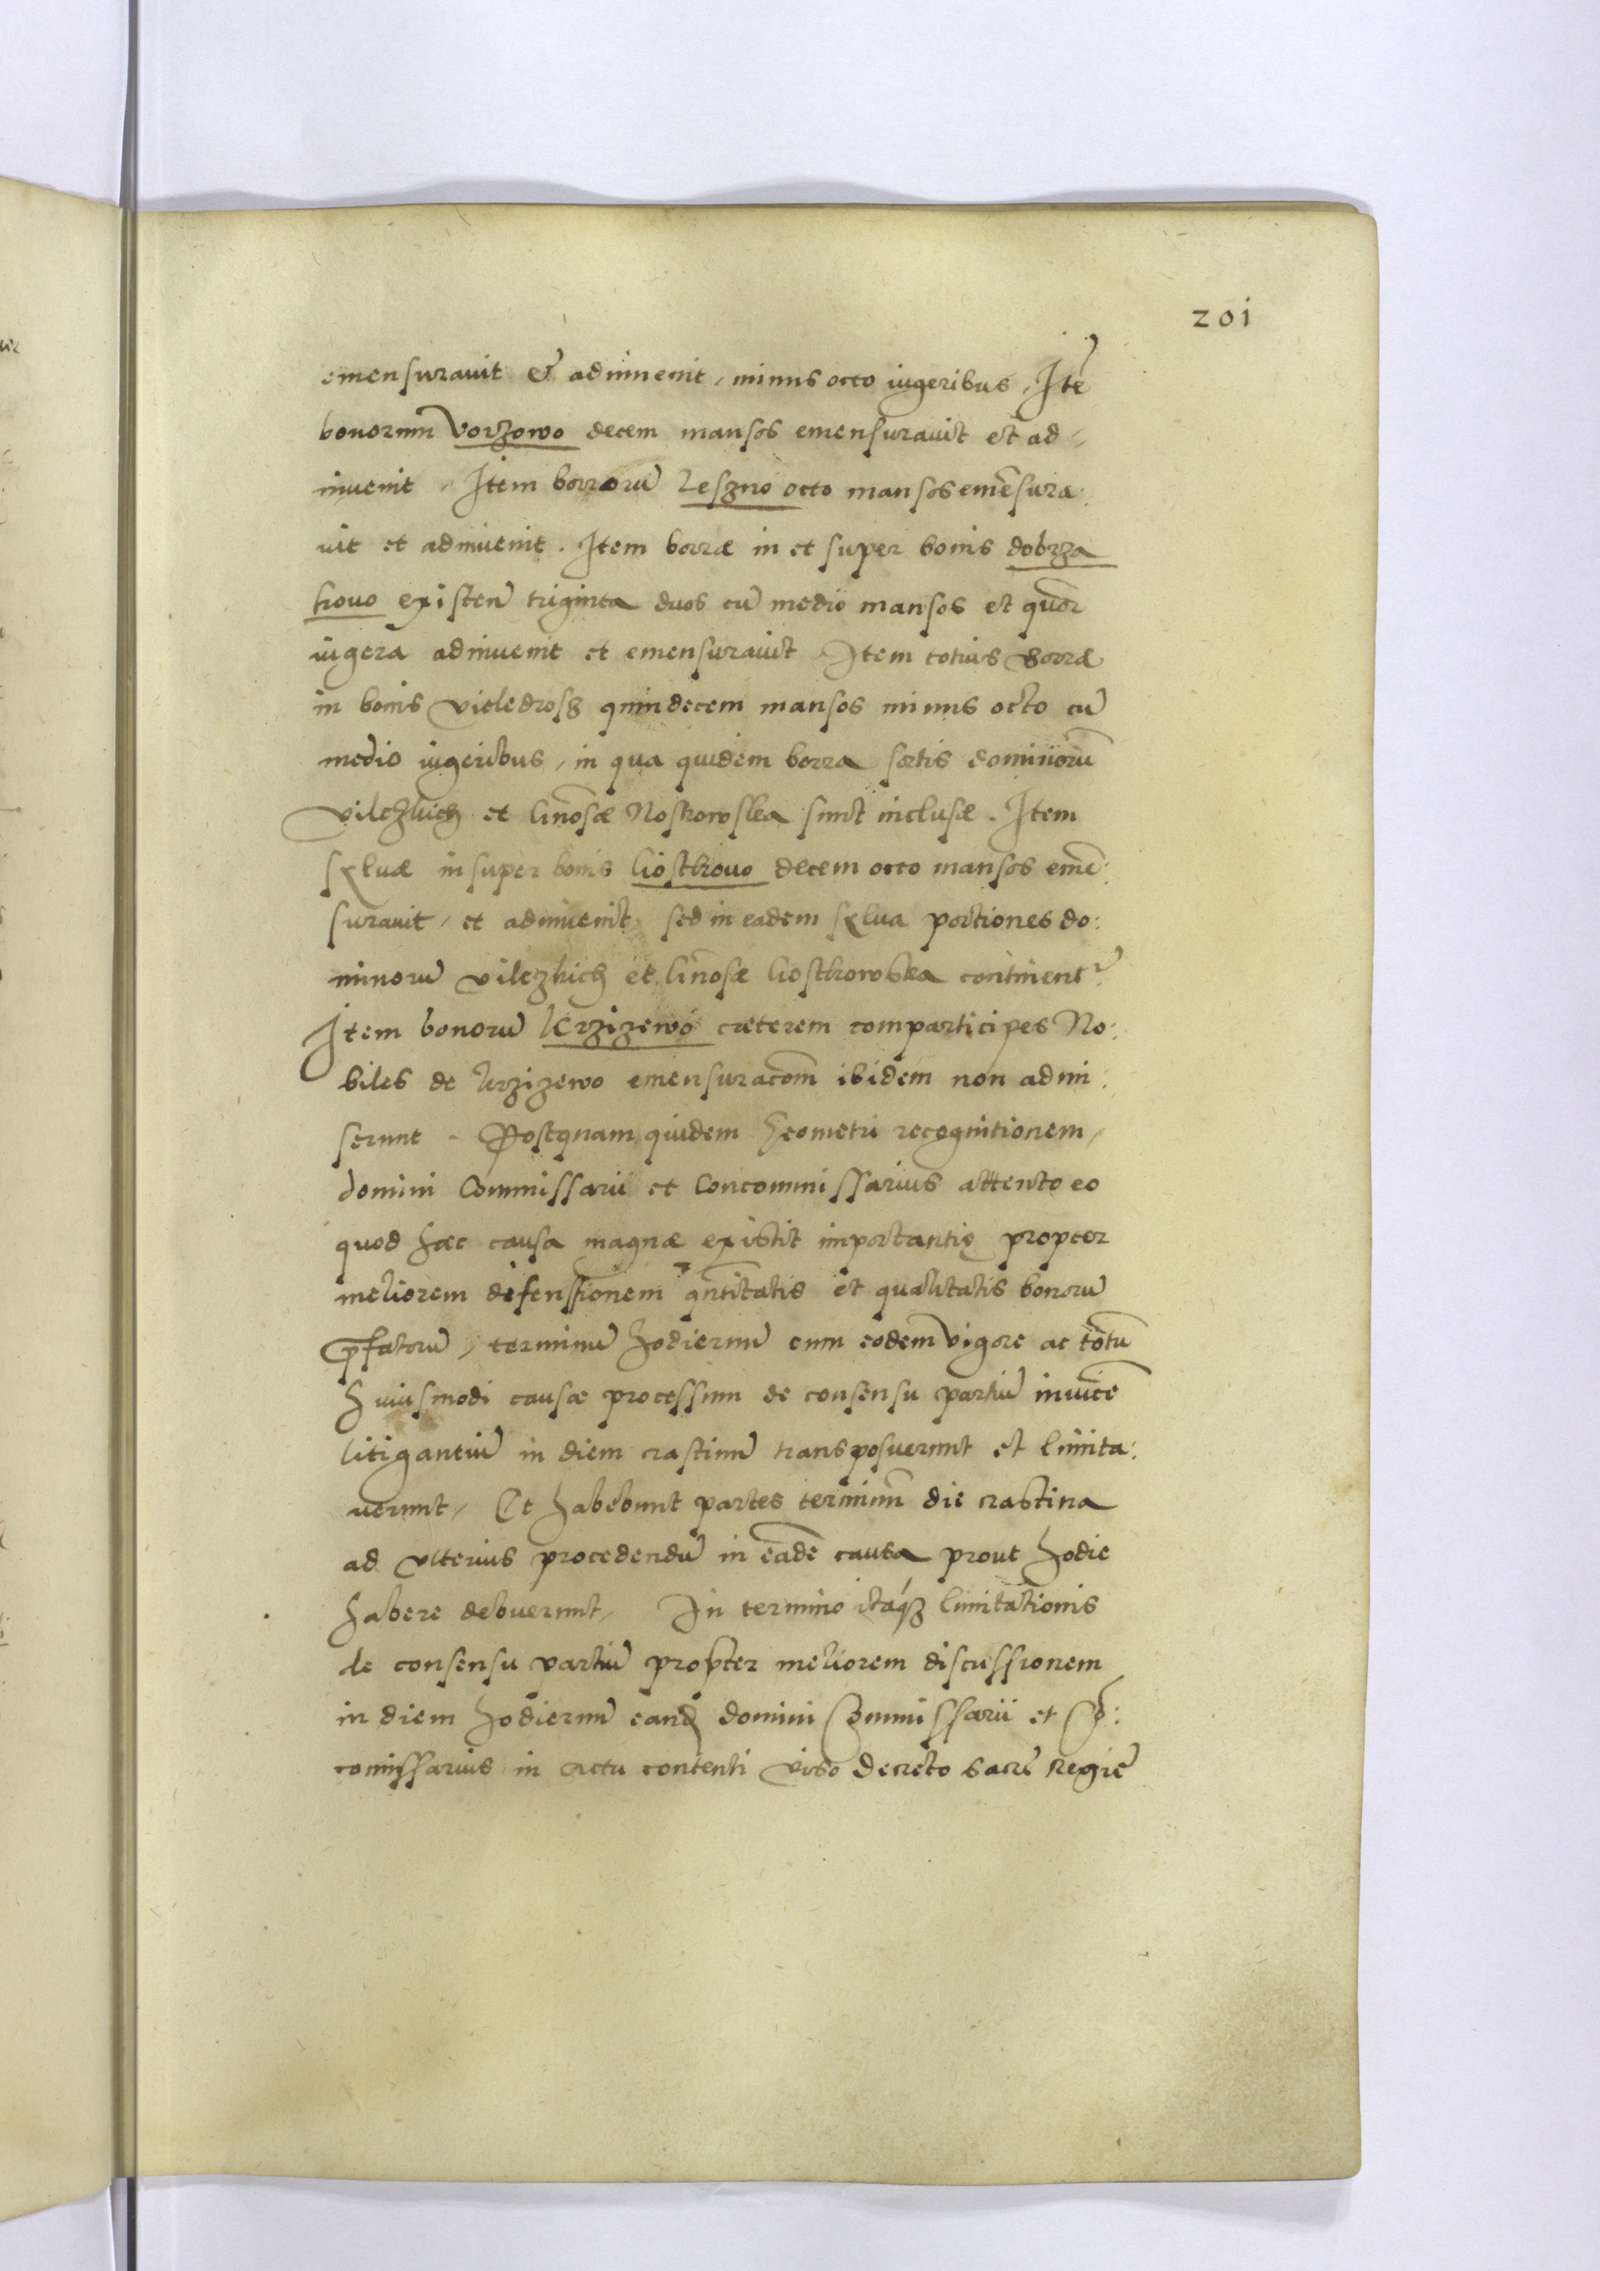 201
emensurauit & adinuenit, minus octo iugeribus, Itē
bonorum Vorzowo decem mansos emensurauit et ad-
inuenit, Item borrorū Leszno octo mansos emēsura:
uit et adinuenit. Item borræ in et super bonis dobrza
kouo existen̄ triginta duos cū medio mansos et quōr
iugera adinuenit et emensurauit Item totius Borræ
in bonis Vieledrosz quindecem mansos minus octo cū
medio iugeribus, in qua quidem borra sortis dominorū
Vilczkich et Gnōsæ sunt inclusæ. Item
sylvæ in super bonis decem octo mansos emē:
surauit, et adinuenit, sed in eadem sylua portiones do:
minorū Vilczkich et Gnōsæ continentr̄
Item bonorū Krzizewo cæterem comparticipes No:
biles de krzizewo emensuracōm ibidem non admi:
serunt. Postquam quidem Geometri recognitionem,
domini Commissarii et Concommissarius attento eo
quod hæc causa magnæ existit importantię propter
meliorem defensionem qn̄titatis et qualitatis bonorū
pr̄fatorū, terminū hodiernū cum eodem vigore ac tōtum
huiusmodi causæ processum de consensu partiū inuicē
litigantiū in diem crastinū transposuerunt et limita:
uerunt, Et habebunt partes terminum die crastina
ad vlterius procedendū in eādē causa prout hodie
habere debuerunt, In termino itaq3 limitationis
de consensu partiū propter meliorem discussionem
in diem hodiernū eand domini Commissarii et Cō:
comissarius in actu contenti viso decreto sacrē Regiē